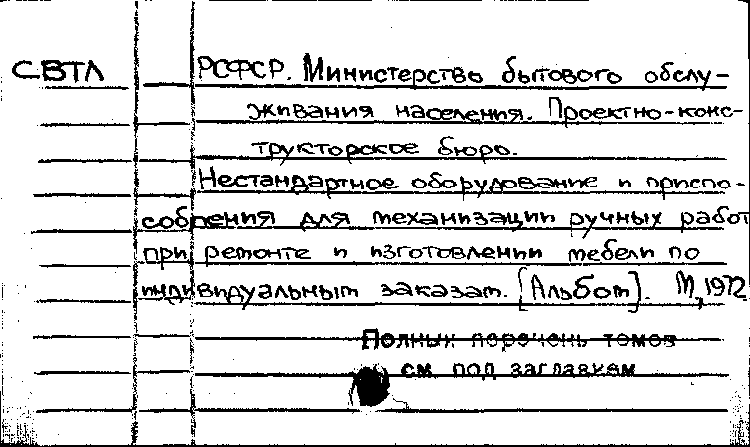 СВТЛ РСФСР. Министерство бытового обслу-
живания населения. Проектно-конс-
трукторское бюро.
Нестандартное оборудование и приспо-
собрения для механизации ручных работ
при ремонте и изготовлении мебели по
индивидуальным заказам. [Альбом]. М, 1972
Полный перечень томов
см. под заглавием